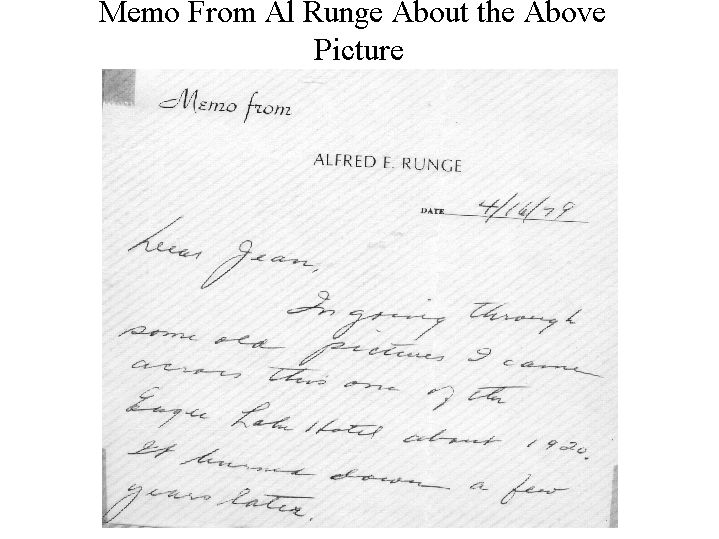 Memo From Al Runge About the Above
Picture
Memo from
ALFRED E. RUNGE
DATE 4/16/79
Dear Jean,
In going through
some old pictures I came
across this one of the
Eagle Lake Hotel about 1920.
It burned down a few
years later.